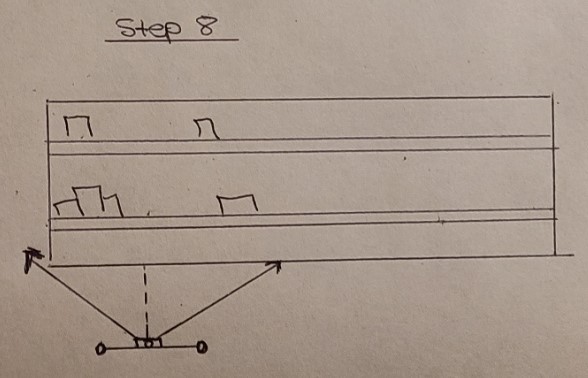 Step 8